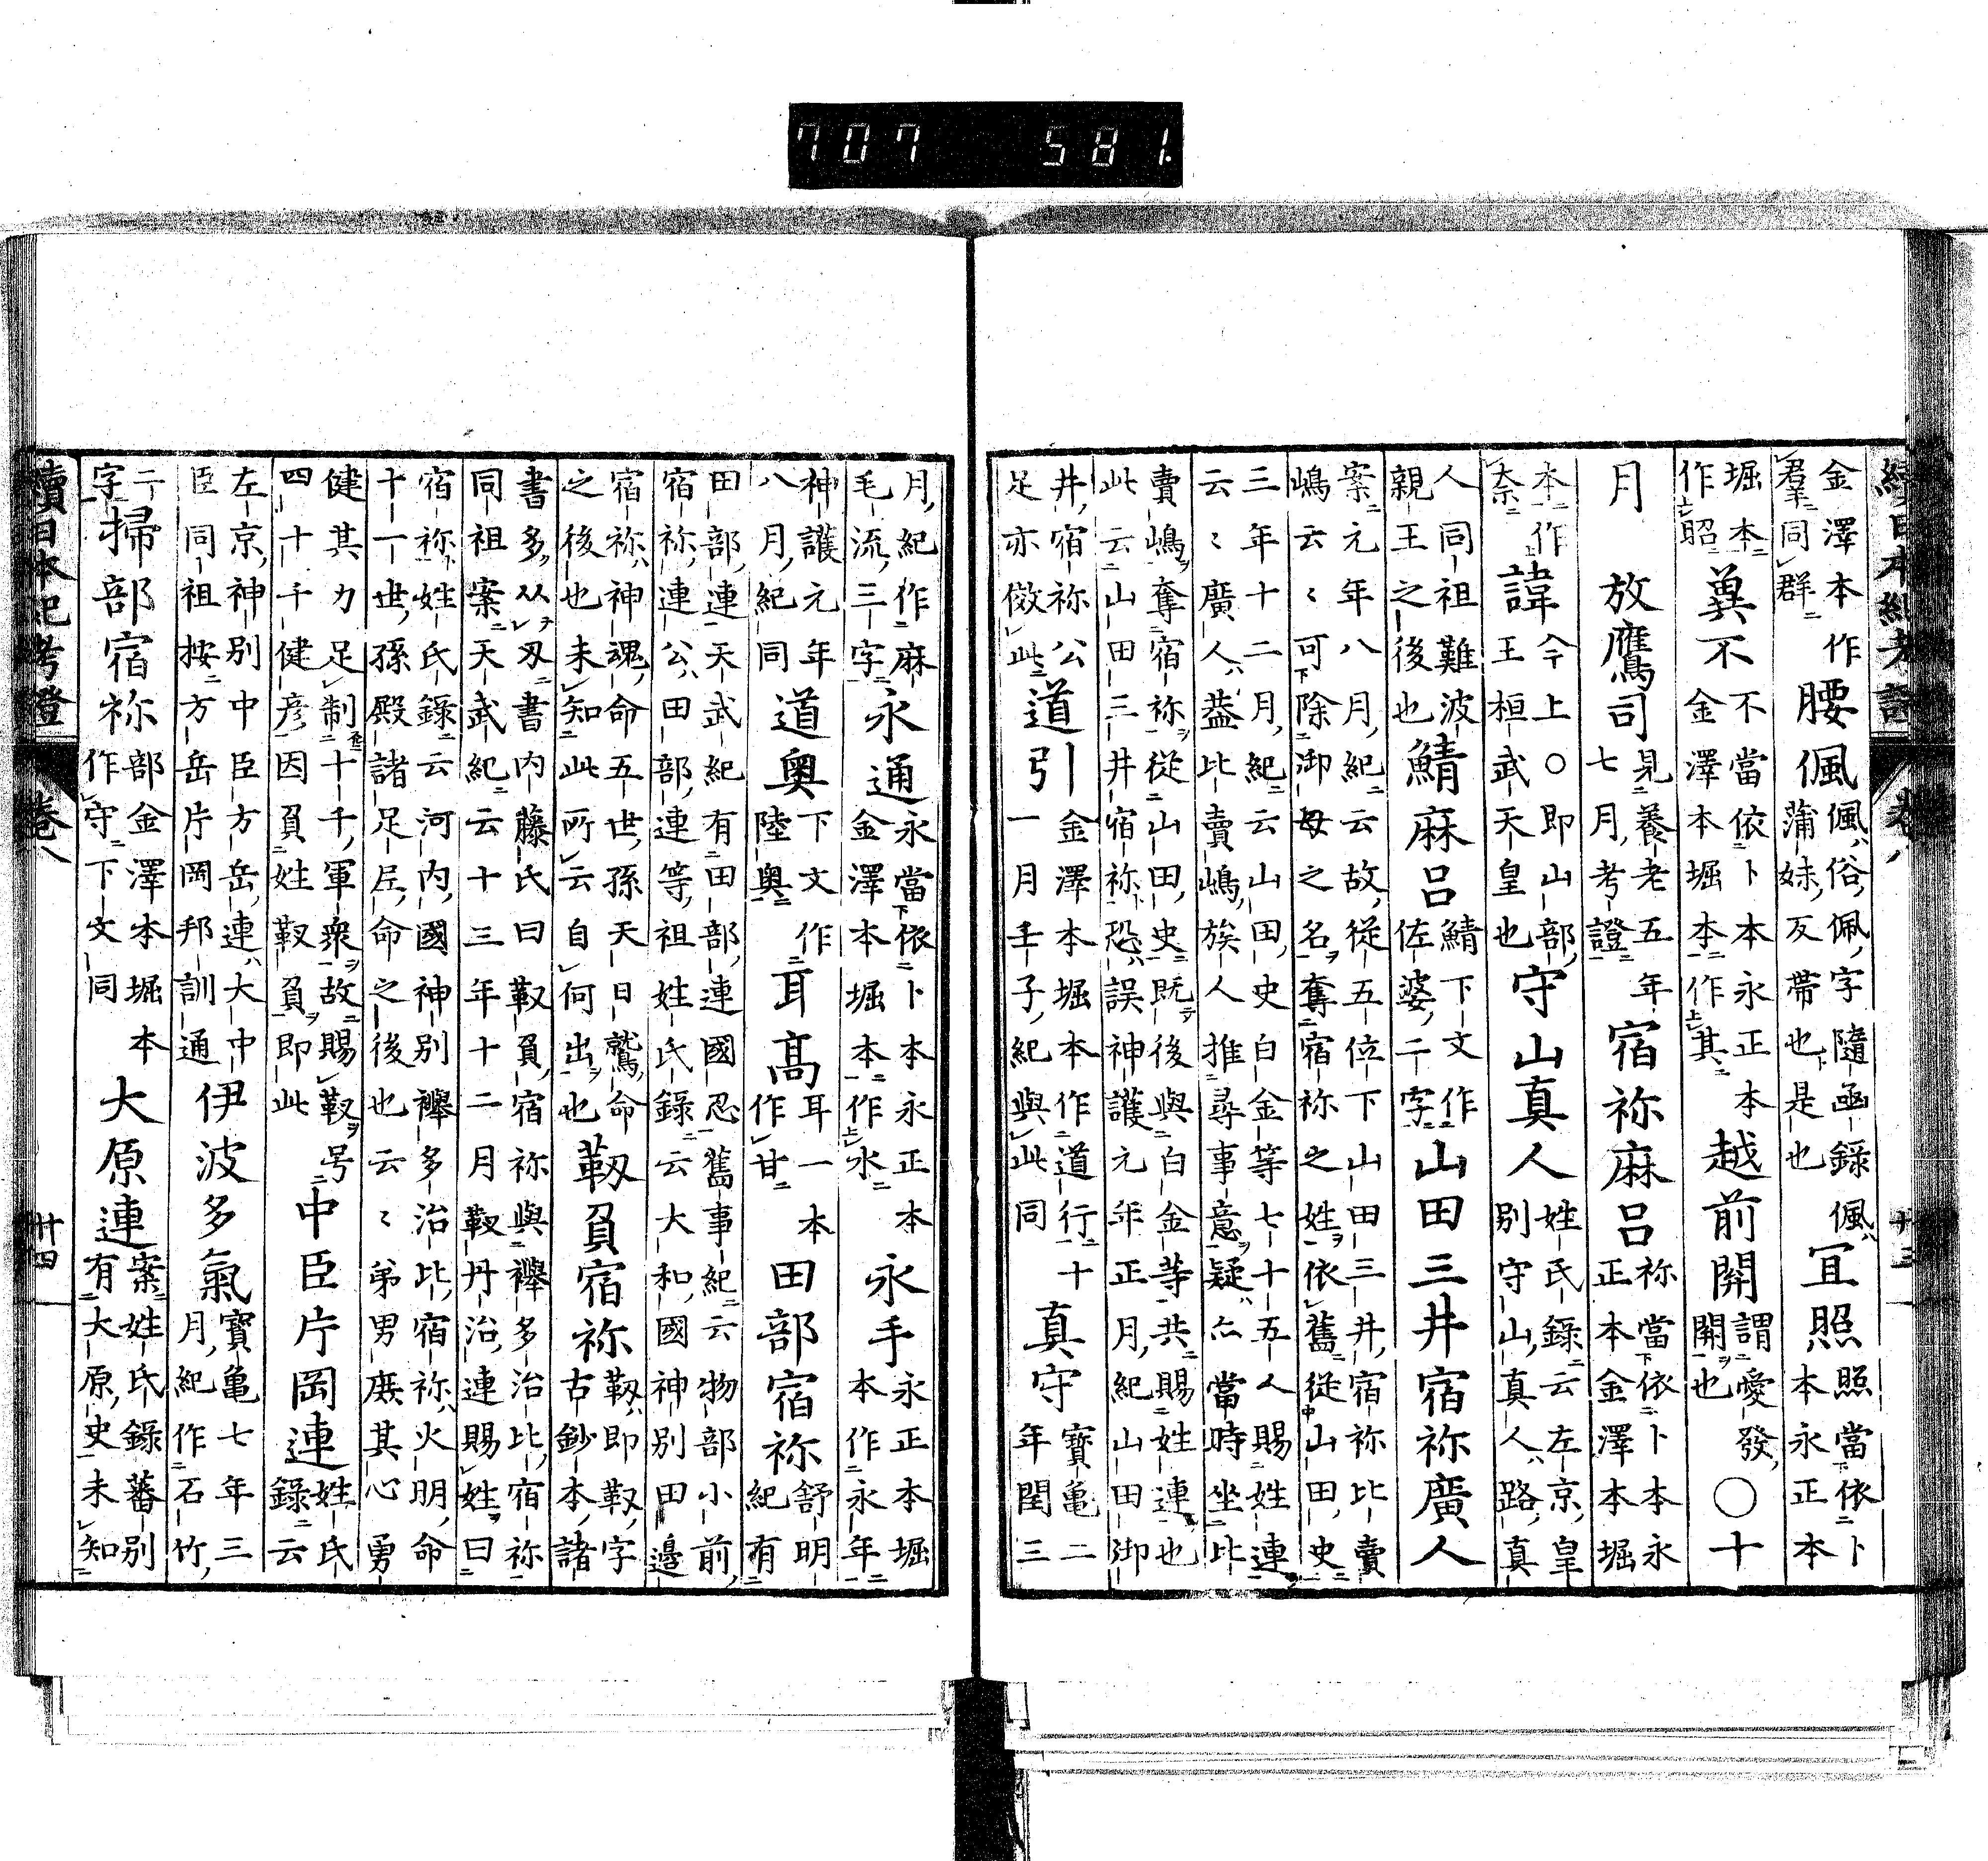 707 581.
續日本紀考證 卷八 廿三
金澤本作
羣同群
腰佩
佩俗佩字隨函錄佩
蒲妹反帶也是也
宜照
照當依卜
本永正本
堀本
作昭
冀不
不當依卜本永正本
金澤本堀本作其
越前關
謂愛發
關也
○十
月
放鷹司
見養老五年
七月考證
宿祢麻呂
祢當依卜本永
正本金澤本堀
本作
奈
諱
今上○即山部
王桓武天皇也
守山真人
姓氏錄云左京皇
別守山真人路真
人同祖難波
親王之後也
鯖麻呂
鯖下文作
佐婆二字
山田三井宿祢廣人
案元年八月紀云故從五位下山田三井宿祢比賣
嶋云〻可除御母之名奪宿祢之姓依舊從山田史
三年十二月紀云山田史白金等七十五人賜姓連
云〻廣人蓋比賣嶋族人推尋事意疑亦當時坐比
賣嶋奪宿祢從山田史既後與白金等共賜姓連也
此云山田三井宿祢恐誤神護元年正月紀山田御
井宿祢公
足亦倣此
道引
金澤本堀本作道行十
一月壬子紀與此同
真守
寶龜二
年閏三
月紀作麻
毛流三字
永通
永當依卜本永正本
金澤本堀本作水
永手
永正本堀
本作永年
神護元年
八月紀同
道奧
下文作
陸奧
耳高
耳一本
作甘
田部宿祢
舒明
紀有
田部連天武紀有田部連國忍舊事紀云物部小前
宿祢連公田部連等祖姓氏錄云大和國神別田邊
宿祢神魂命五世孫天日鷲命
之後也未知此所云自何出也
靱負宿祢
靱即靫字
古鈔本諸
書多从刃書內藤氏曰靫負宿祢與襷多治比宿祢
同祖案天武紀云十三年十二月靫丹治連賜姓曰
宿祢姓氏錄云河內國神別襷多治比宿祢火明命
十一世孫殿諸足尼命之後也云〻弟男庶其心勇
健其力足制十千軍衆故賜靫号
四十千健彥因負姓靫負即此
中臣片岡連
姓氏
錄云
左京神別中臣方岳連大中
臣同祖按方岳片岡邦訓通
伊波多氣
寶龜七年三
月紀作石竹
二
字
掃部宿祢
部金澤本堀本
作守下文同
大原連
案姓氏錄蕃別
有大原史未知
續日本紀考證 卷八 廿四